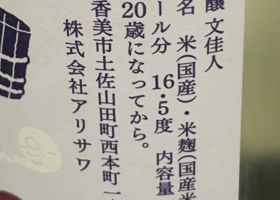 醸 文佳人
名 米(国産)・米麹(国産米
ール分 16・5度 内容量
20歳になってから。
香美市土佐山田町西本町一
株式会社アリサワ